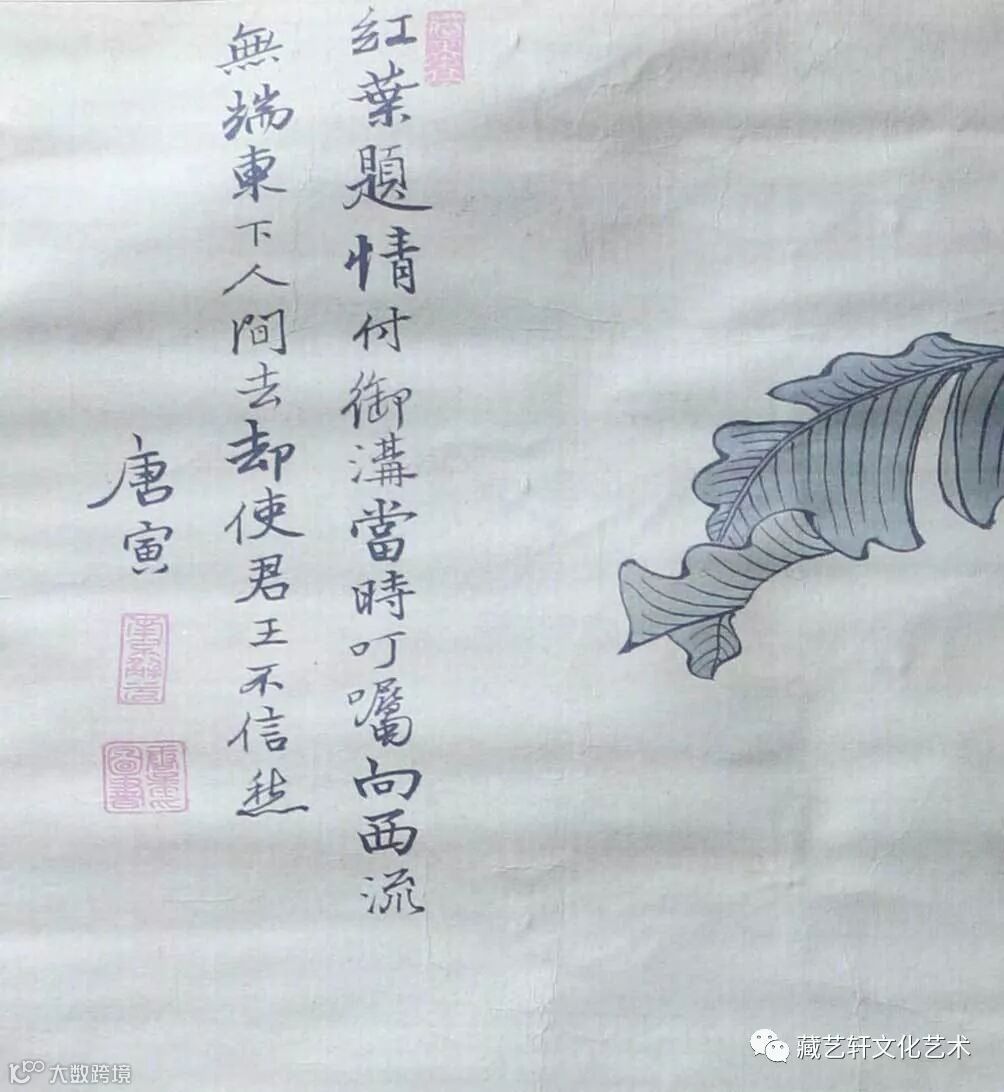 紅葉題情付御溝當時叮囑向西流
無端東下人間去却使君王不信愁
唐寅
南京解元
藏艺轩文化艺术
大数跨境